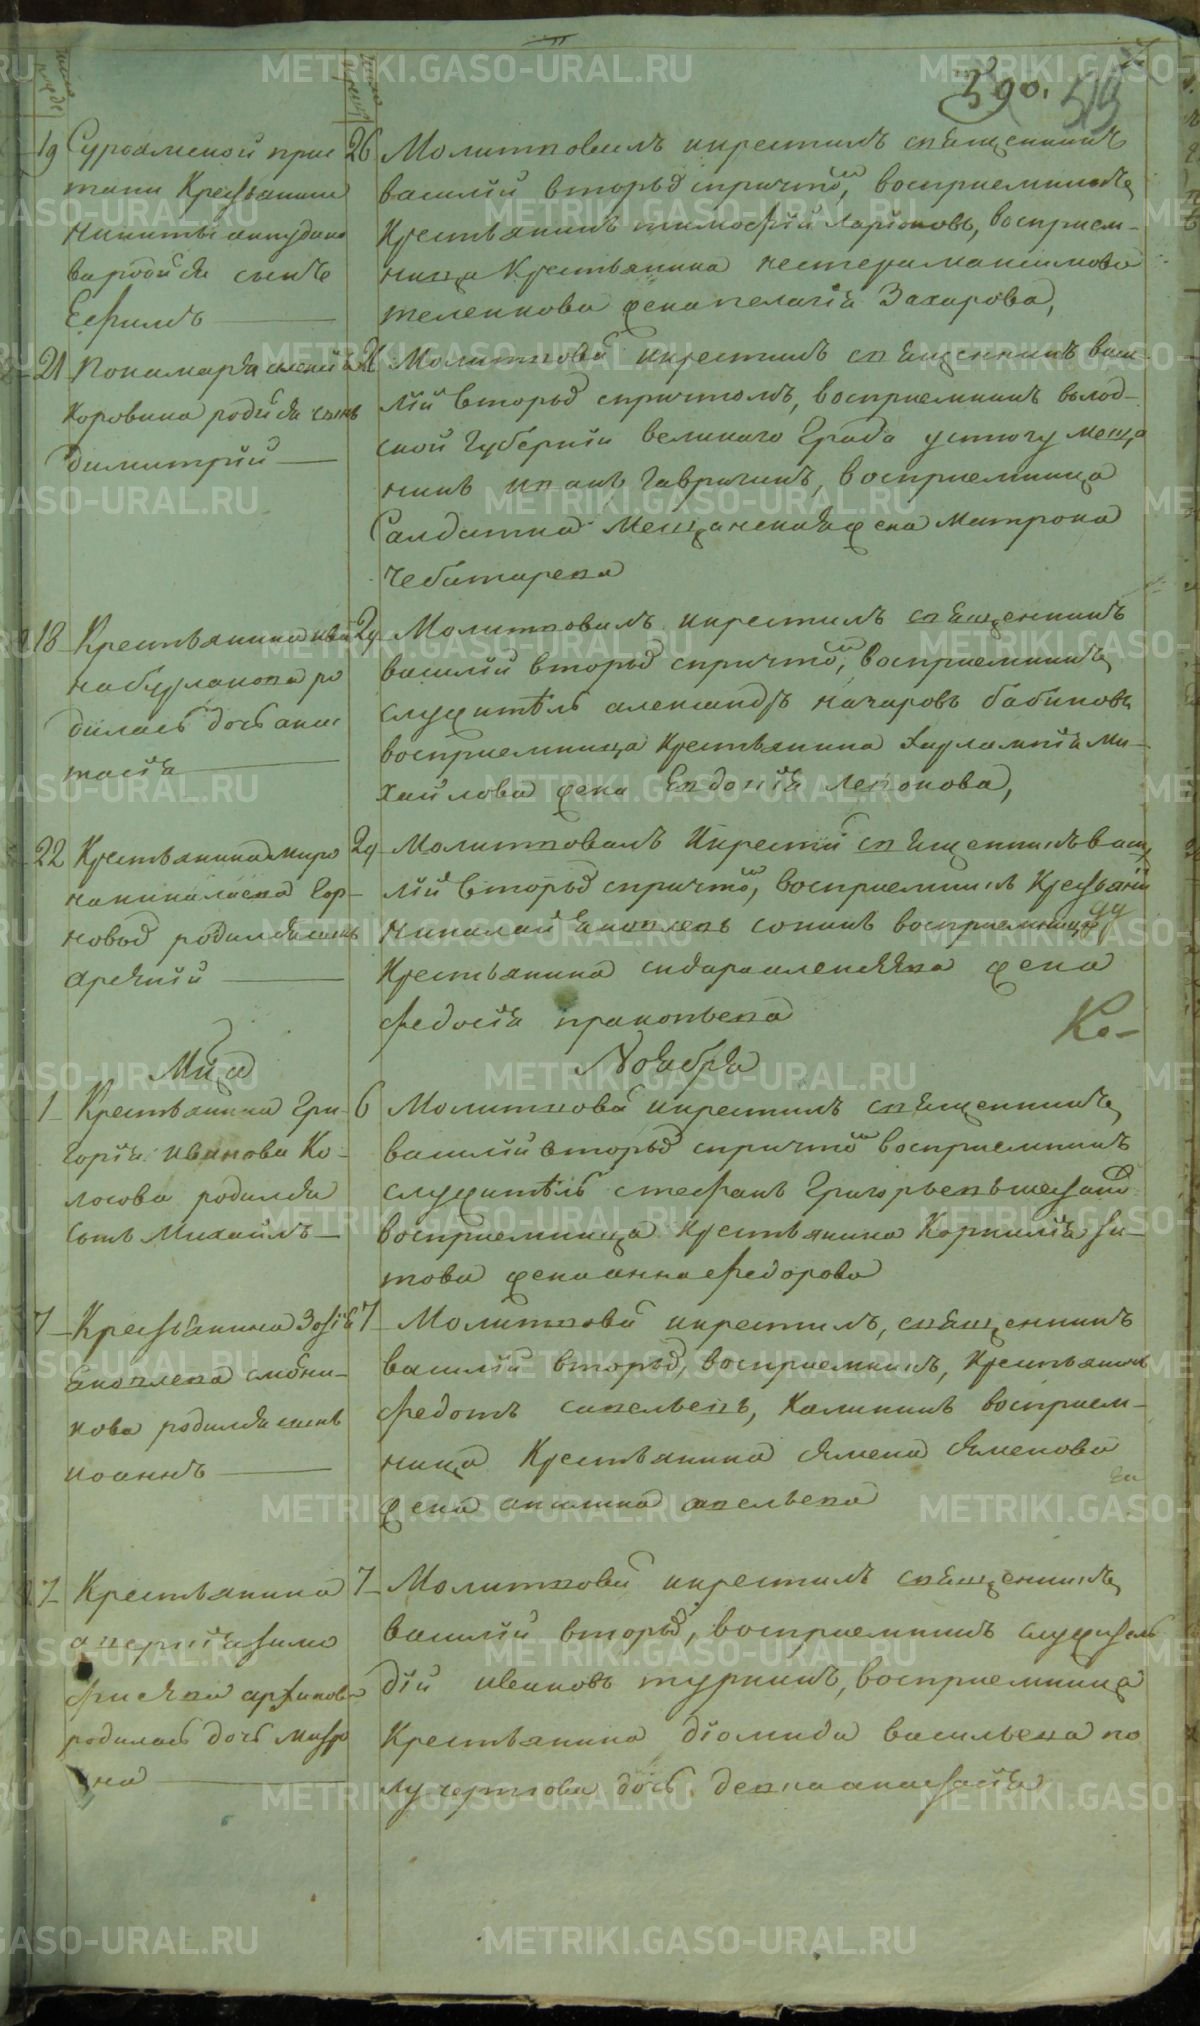 390.
19 Суроамской прис
тани Крестьянина
Никиты анкудино
ва родился сынъ
Ефимъ
26 Молитвовалъ икрестилъ священникъ
василій вторый спричтом, восприемникъ
Крестьянинъ тимофей Ларионовъ, восприем-
ница Крестьянина нестера максимова
теленкова жена пелагія Захарова,
21 Пономаря алексія
Коровина родился сынъ
Димитрий
Молитвова икрестилъ священникъ васи
лій вторый спричтомъ, восприемникъ волод-
ской Губерніи великаго Града устюгу меща
нинъ иванъ Гавричинъ, восприемница
Салдатка мещанская жена матрона
чеботарева
18 Крестьянина ива
на бурлакова ро
дилась дочь анас
тасія
29 Молитвовалъ икрестилъ священникъ
василій вторый спричто, восприемникъ
служитѣль александръ качаровъ бабиновъ
восприемница Крестьянина Харлампія ми-
хайлова жена Евдокія
22 Крестьянина миро
на николаева Гор-
новыд родился сынъ
арсѣний
29 Молитвовалъ Икрести священникъ васи
лій вторый спричто, восприемникъ Крестьяни
николай яковлевъ сонинъ восприемница
Крестьянина сидора алексѣева жена
федосія пракопьева
Ко-
Мца Ноября
1 Крестьянина Гри-
горія иванова Ко-
лосова родился
сынъ Михаилъ
6 Молитвова икрестилъ священникъ
василій вторый спричто восприемникъ
служитѣль стефанъ Григорьевъ
восприемница Крестьянина Корнилія ти-
това жена анна федорова
7 Крестьянина Зотія
яковлева
нова родился сынъ
иоаннъ
7 Молитвова икрестилъ, священникъ
василій вторый, восприемникъ, Крестьянинъ
федотъ савельевъ, Калининъ восприем-
ница Крестьянина сѣмена сѣменова
жена акилина савельева
7 Крестьянина
архипов
родилась дочь матр
она
7 Молитвова икрестилъ священникъ
василій вторый, восприемникъ служитель
дій ивановъ туркинъ, восприемница
Крестьянина діомида васильева по
лучертова дочь девка анастасія
METRIKI.GASO-URAL.RU